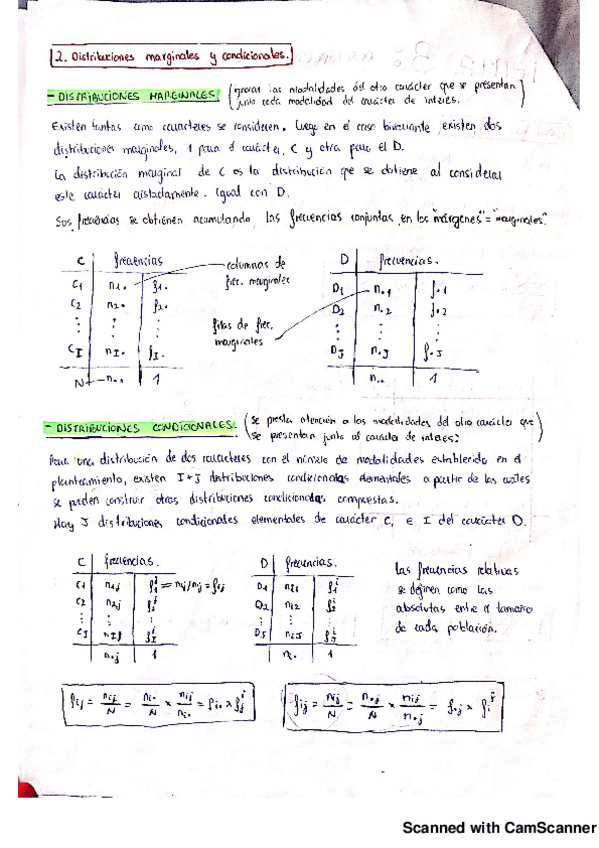 2. Distribuciones marginales y condicionales.
- DISTRIBUCIONES MARGINALES. (Ignorar las modalidades del otro carácter que se presentan
junto cada modalidad del carácter de interés.)
Existen tantas como caracteres se consideren. Luego en el caso bivariante existen dos
distribuciones marginales, 1 para el carácter C y otra para el D.
La distribución marginal de C es la distribución que se obtiene al considerar
este carácter aisladamente. Igual con D.
Sus frecuencias se obtienen acumulando las frecuencias conjuntas en los "márgenes" = "marginales".
C frecuencias
C1 n1. f1.
C2 n2. f2.
⋮ ⋮ ⋮
CI nI. fI.
N n.. 1
columnas de
frec. marginales
filas de frec.
marginales
D frecuencias.
D1 n.1 f.1
D2 n.2 f.2
⋮ ⋮ ⋮
DJ n.J f.J
n.. 1
- DISTRIBUCIONES CONDICIONALES. (Se presta atención a las modalidades del otro carácter que
se presentan junto al carácter de interés:)
Para una distribución de dos caracteres con el número de modalidades establecido en el
planteamiento, existen I+J distribuciones condicionadas elementales a partir de las cuales
se pueden construir otras distribuciones condicionadas compuestas.
Hay J distribuciones condicionales elementales de carácter C, e I del carácter D.
C frecuencias.
C1 n1j f1^j = nij/n.j = fij
C2 n2j f2^j
⋮ ⋮ ⋮
CI nIj fI^j
n.j 1
D frecuencias.
D1 ni1 f1^i
D2 ni2 f2^i
⋮ ⋮ ⋮
DJ niJ fJ^i
ni. 1
Las frecuencias relativas
se definen como las
absolutas entre el tamaño
de cada población.
fij = nij/N = ni./N × nij/ni. = fi. × fj^i
fij = nij/N = n.j/N × nij/n.j = f.j × fi^j
Scanned with CamScanner